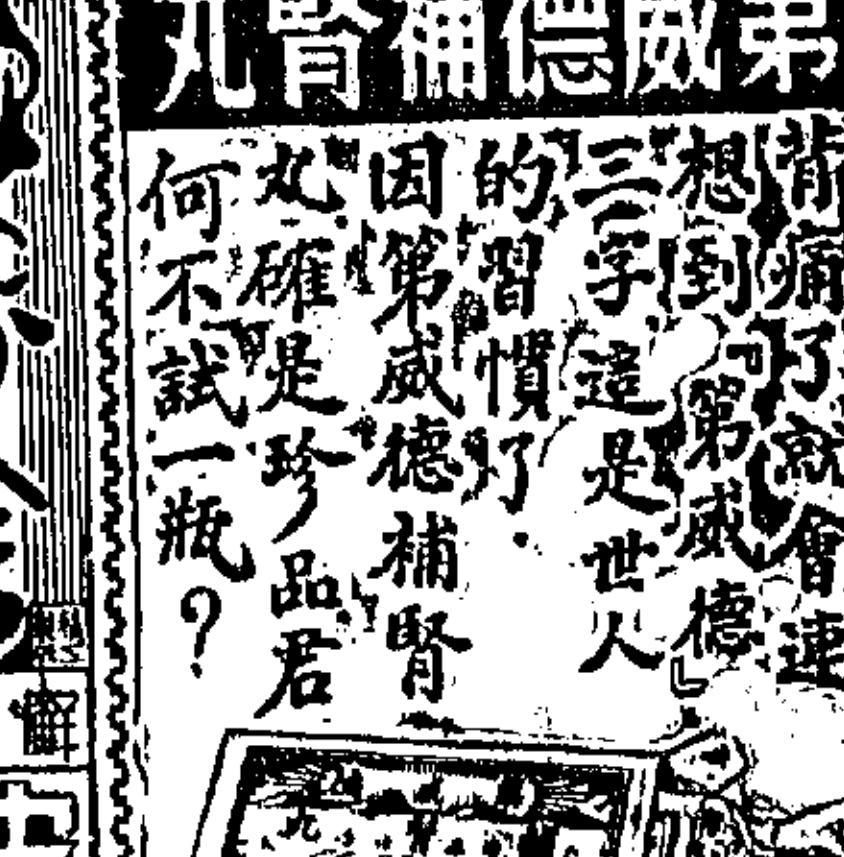 丸腎補德威第
背痛了就會連
想到『第威德』
三字這是世人
的習慣了.
因第威德補腎
丸確是珍品君
何不試一瓶？